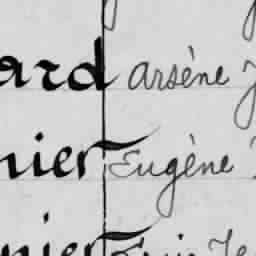 ard Arsène J
nier Eugène
nier